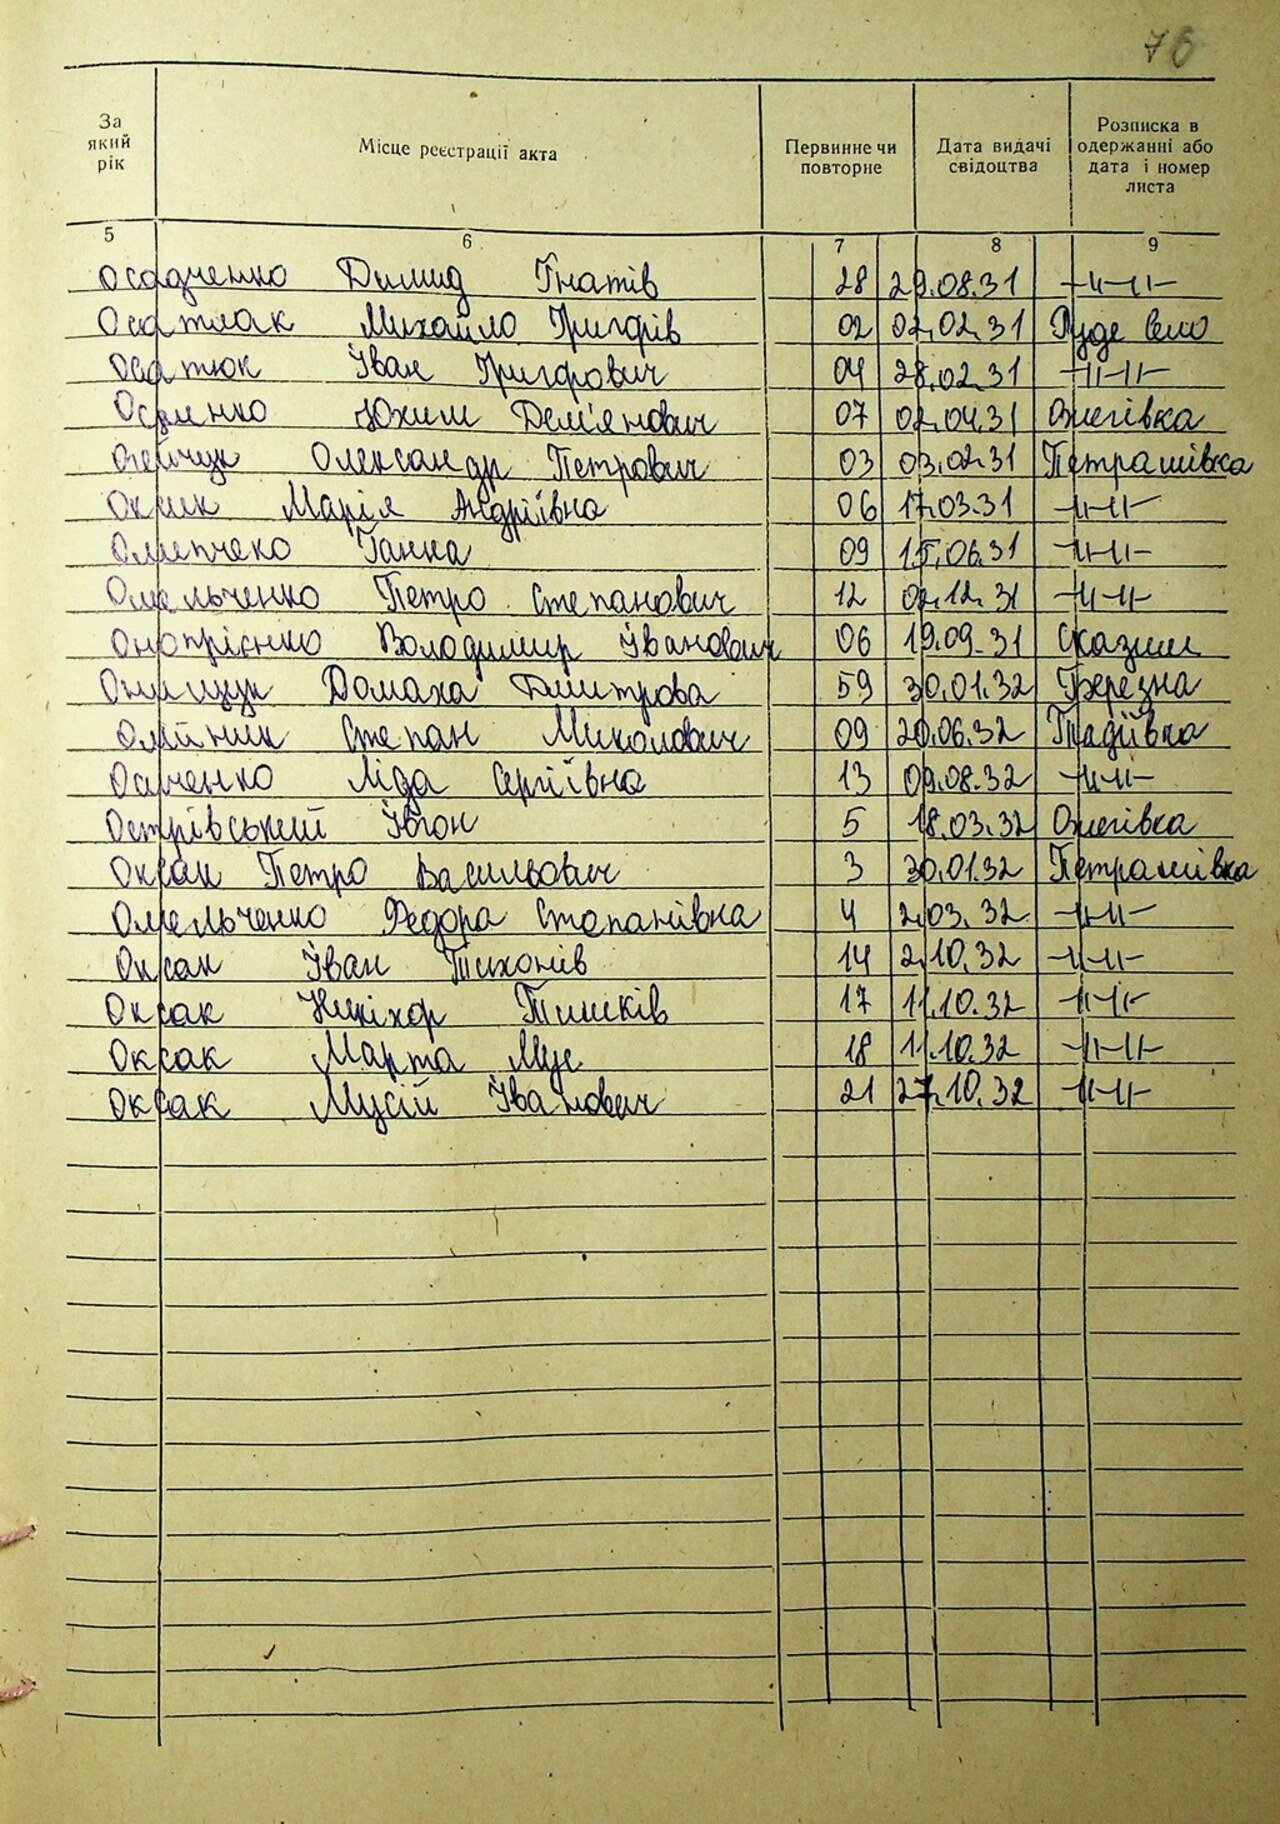 76
За який рік
Місце реєстрації акта
Первинне чи повторне
Дата видачі свідоцтва
Розписка в одержанні або дата і номер листа
5 6 7 8 9
Осадченко Гнатів 28 29.08.31 -〃-〃-
Михайло Григорів 02 02.02.31 Руде Село
Осатюк Іван Григорович 04 28.02.31 -〃-〃-
Юхим Дем'янович 07 02.04.31 Ожегівка
Олександр Петрович 03 03.02.31 Петрашівка
Марія Андріївна 06 17.03.31 -〃-〃-
Ганна 09 15.06.31 -〃-〃-
Омельченко Петро Степанович 12 02.12.31 -〃-〃-
Онопрієнко Володимир Іванович 06 19.09.31
Онищук Домаха Дмитрова 59 30.01.32 Березна
Олійник Степан Миколович 09 20.06.32
Ліда Сергіївна 13 09.08.32 -〃-〃-
Острівський 5 18.03.32 Ожегівка
Оксак Петро Васильович 3 30.01.32 Петрашівка
Омельченко Федора Степанівка 4 2.03.32 -〃-〃-
Оксак Іван Тихонів 14 2.10.32 -〃-〃-
Оксак Никіхор 17 11.10.32 -〃-〃-
Оксак Марта Мус 18 11.10.32 -〃-〃-
Оксак Мусій Іванович 21 27.10.32 -〃-〃-